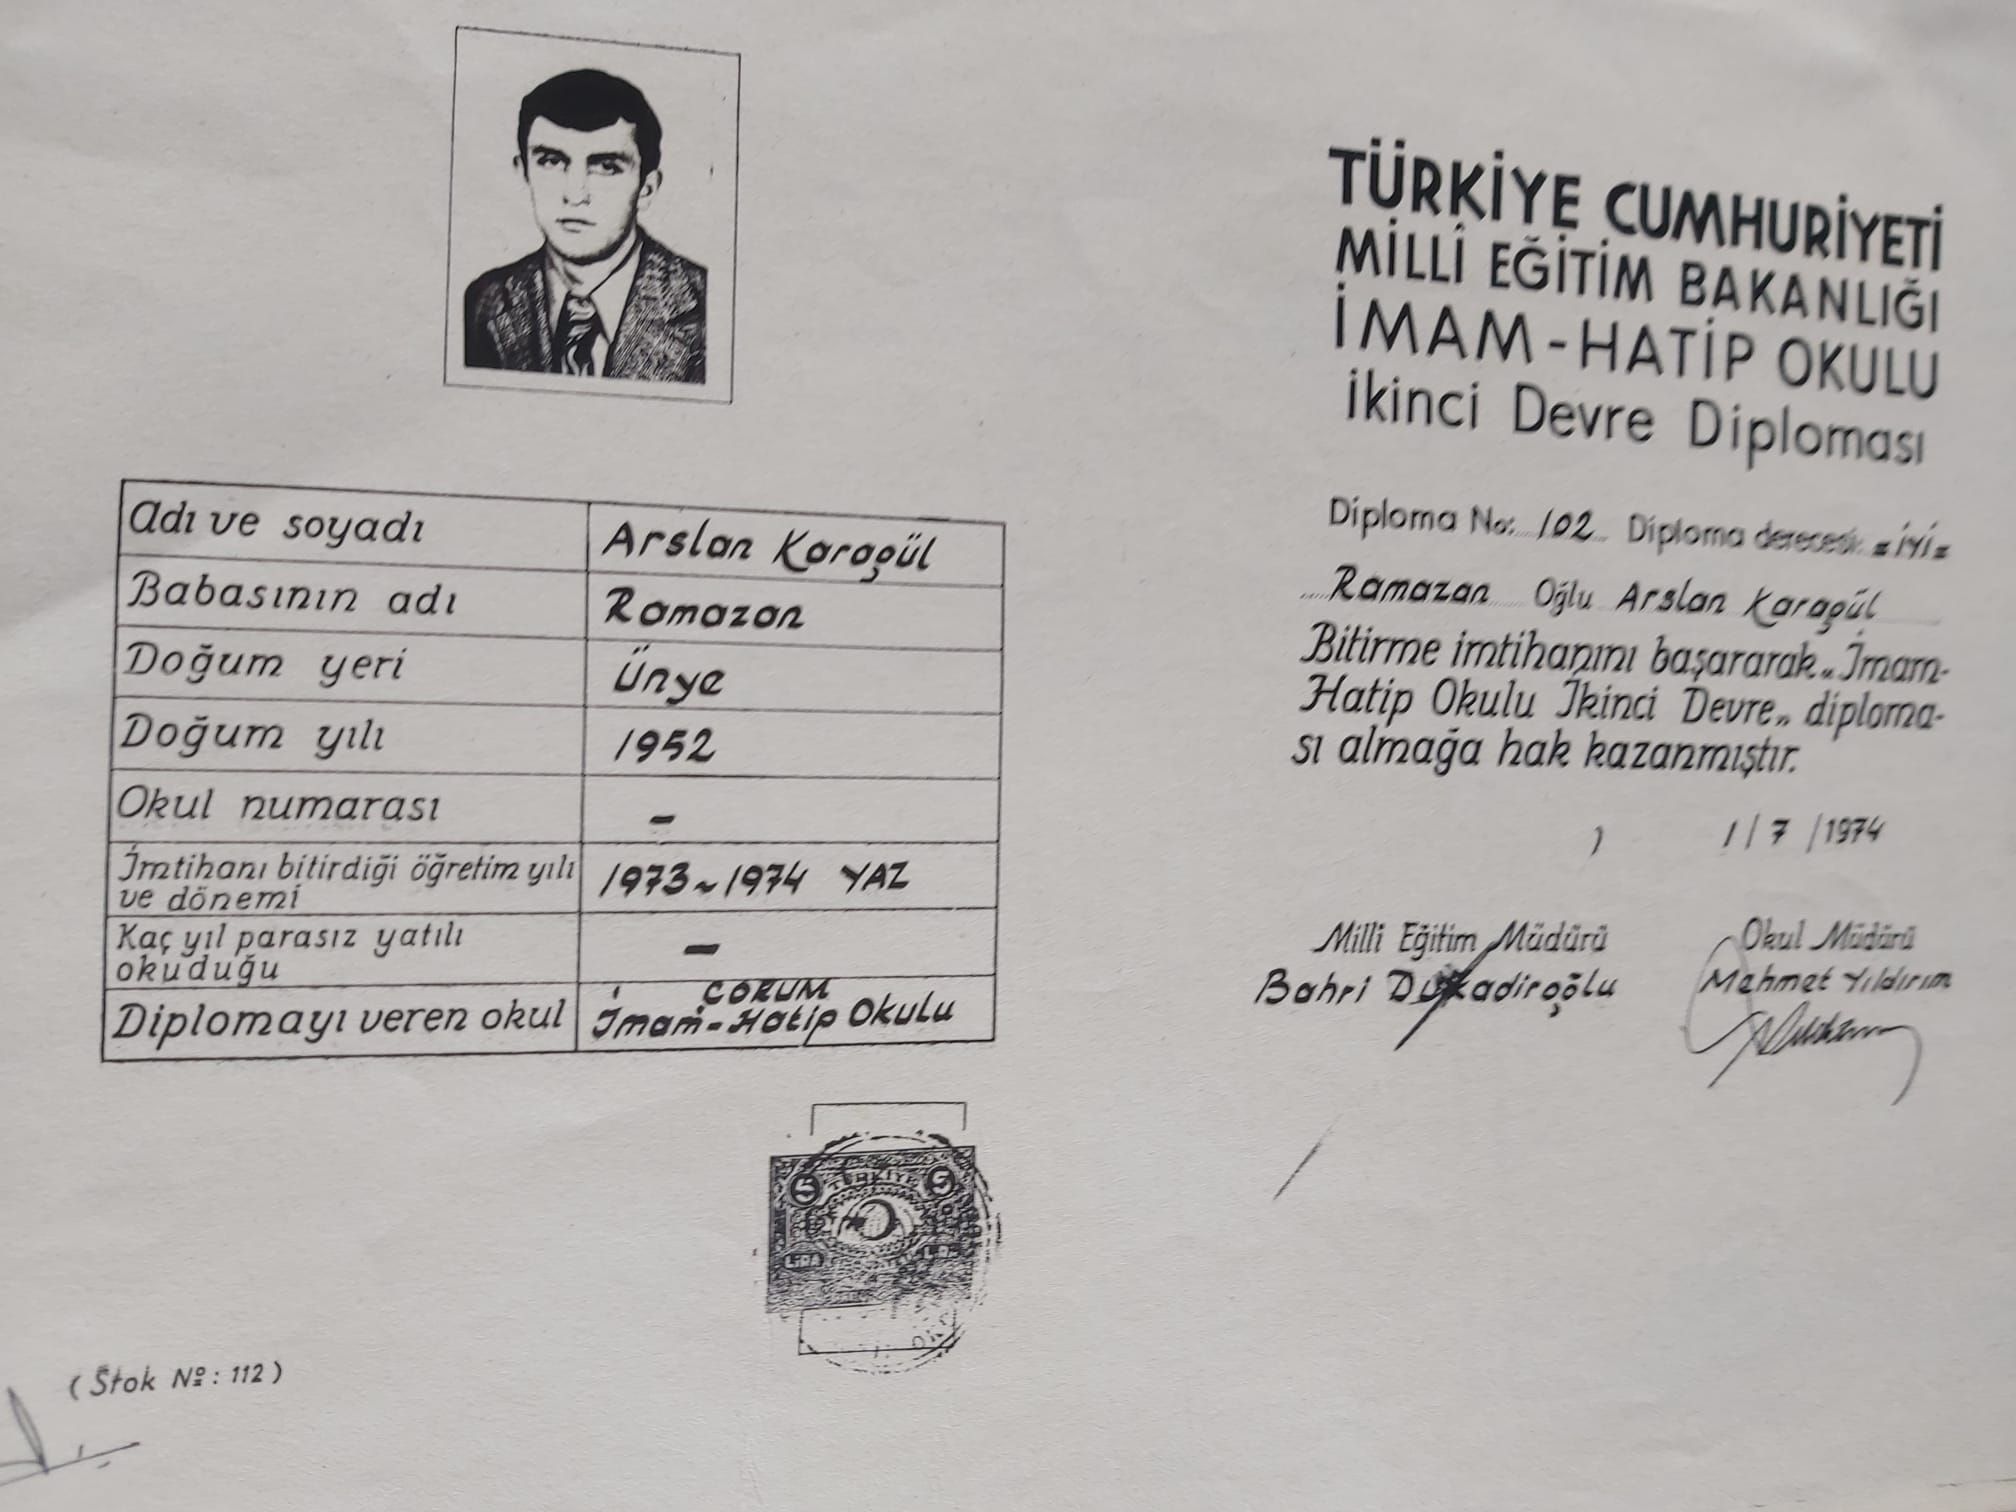 Adı ve soyadı Arslan Karagül
Babasının adı Ramazan
Doğum yeri Ünye
Doğum yılı 1952
Okul numarası -
İmtihanı bitirdiği öğretim yılı
ve dönemi 1973~1974 YAZ
Kaç yıl parasız yatılı
okuduğu -
ÇORUM
Diplomayı veren okul İmam-Hatip Okulu
5 TÜRKİYE 5
LİRA
(Stok №: 112)
TÜRKİYE CUMHURİYETİ
MİLLÎ EĞİTİM BAKANLIĞI
İMAM-HATİP OKULU
İkinci Devre Diploması
Diploma No: 102 Diploma derecesi: =İYİ=
Ramazan Oğlu Arslan Karagül
Bitirme imtihanını başararak „İmam-
Hatip Okulu İkinci Devre„ diploma-
sı almağa hak kazanmıştır.
1/7/1974
Millî Eğitim Müdürü Okul Müdürü
Bahri Dulkadiroğlu Mehmet Yıldırım